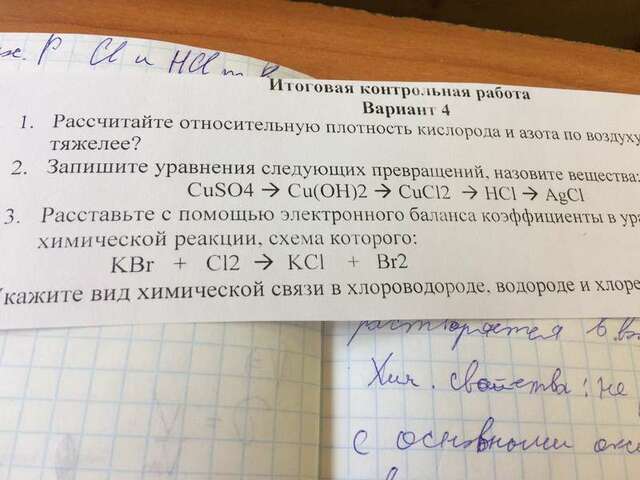 Р Cl и HCl
Итоговая контрольная работа
Вариант 4
1. Рассчитайте относительную плотность кислорода и азота по воздуху
тяжелее?
2. Запишите уравнения следующих превращений, назовите вещества:
CuSO4 → Cu(OH)2 → CuCl2 → HCl → AgCl
3. Расставьте с помощью электронного баланса коэффициенты в ура
химической реакции, схема которого:
KBr + Cl2 → KCl + Br2
Укажите вид химической связи в хлороводороде, водороде и хлоре
растворяется в
Хим. свойства: не
с основными